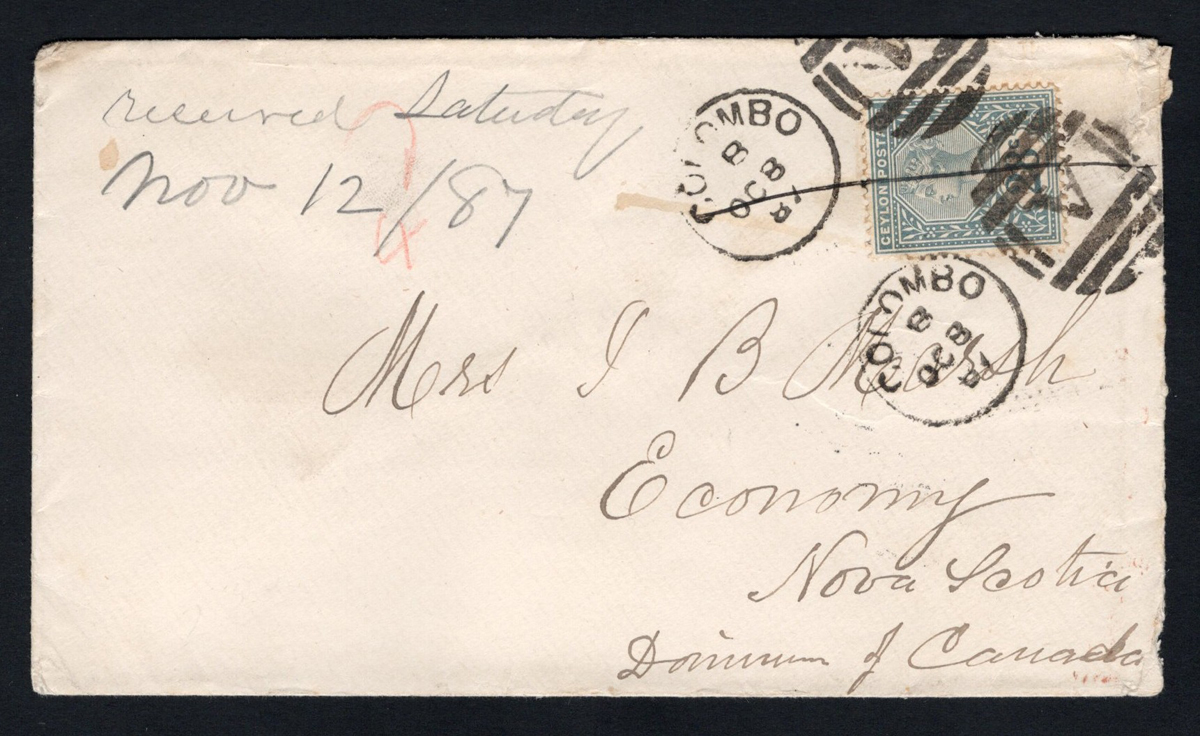 received Saturday
Nov 12/87
COLOMBO
8
OC 8
87
CEYLON POSTAGE
28c
A
COLOMBO
8
OC 8
87
Mrs J B Marsh
Economy
Nova Scotia
Dominion of Canada